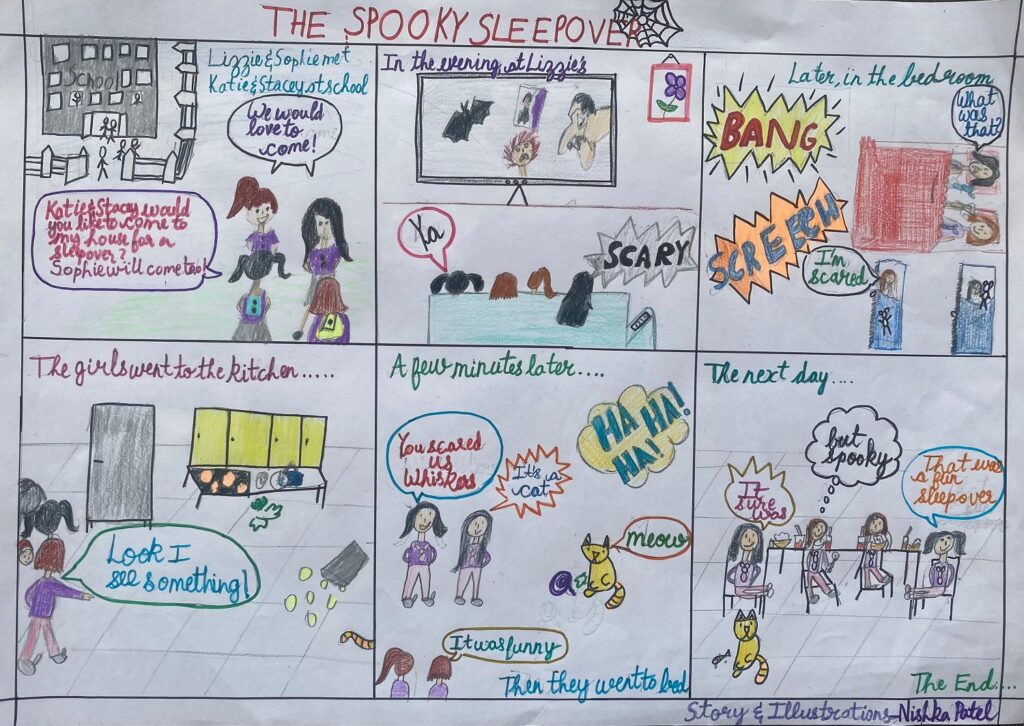 THE SPOOKY SLEEPOVER
School
Lizzie & Sophie met
Katie & Stacey at school
We would
love to
come!
Katie & Stacey would
you like to come to
my house for a
sleepover?
Sophie will come too!
In the evening at Lizzie's
Ya
SCARY
Later, in the bedroom
BANG
What
was
that?
SCREECH
I'm
scared
The girls went to the kitchen.....
Look I
see something!
A few minutes later....
HA HA!
HA!
You scared
us
Whiskers
It's a
cat
meow
It was funny
Then they went to bed
The next day....
but
spooky
It
sure
was
That was
a fun
sleepover
The End....
Story & Illustrations - Nishka Patel